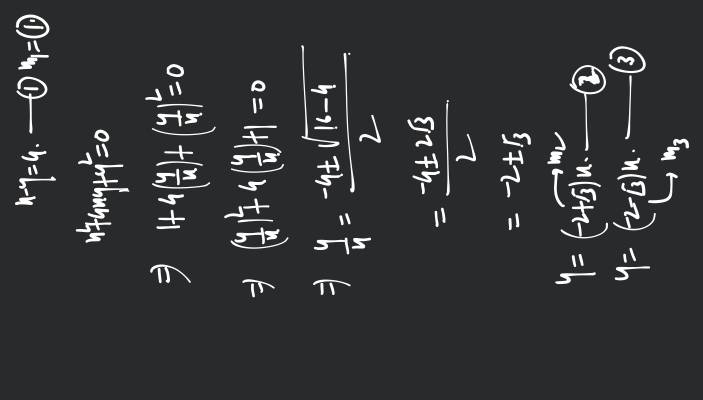 x-y=4. —① m₁=①
x²+4xy+y²=0
⇒ 1+4(y/x)+(y/x)²=0
⇒ (y/x)²+4(y/x)+1=0
⇒ y/x = -4±√16-4 / 2
= -4±2√3 / 2
= -2±√3
y=(-2+√3)x. —② →m₂
y=(-2-√3)x. —③ →m₃